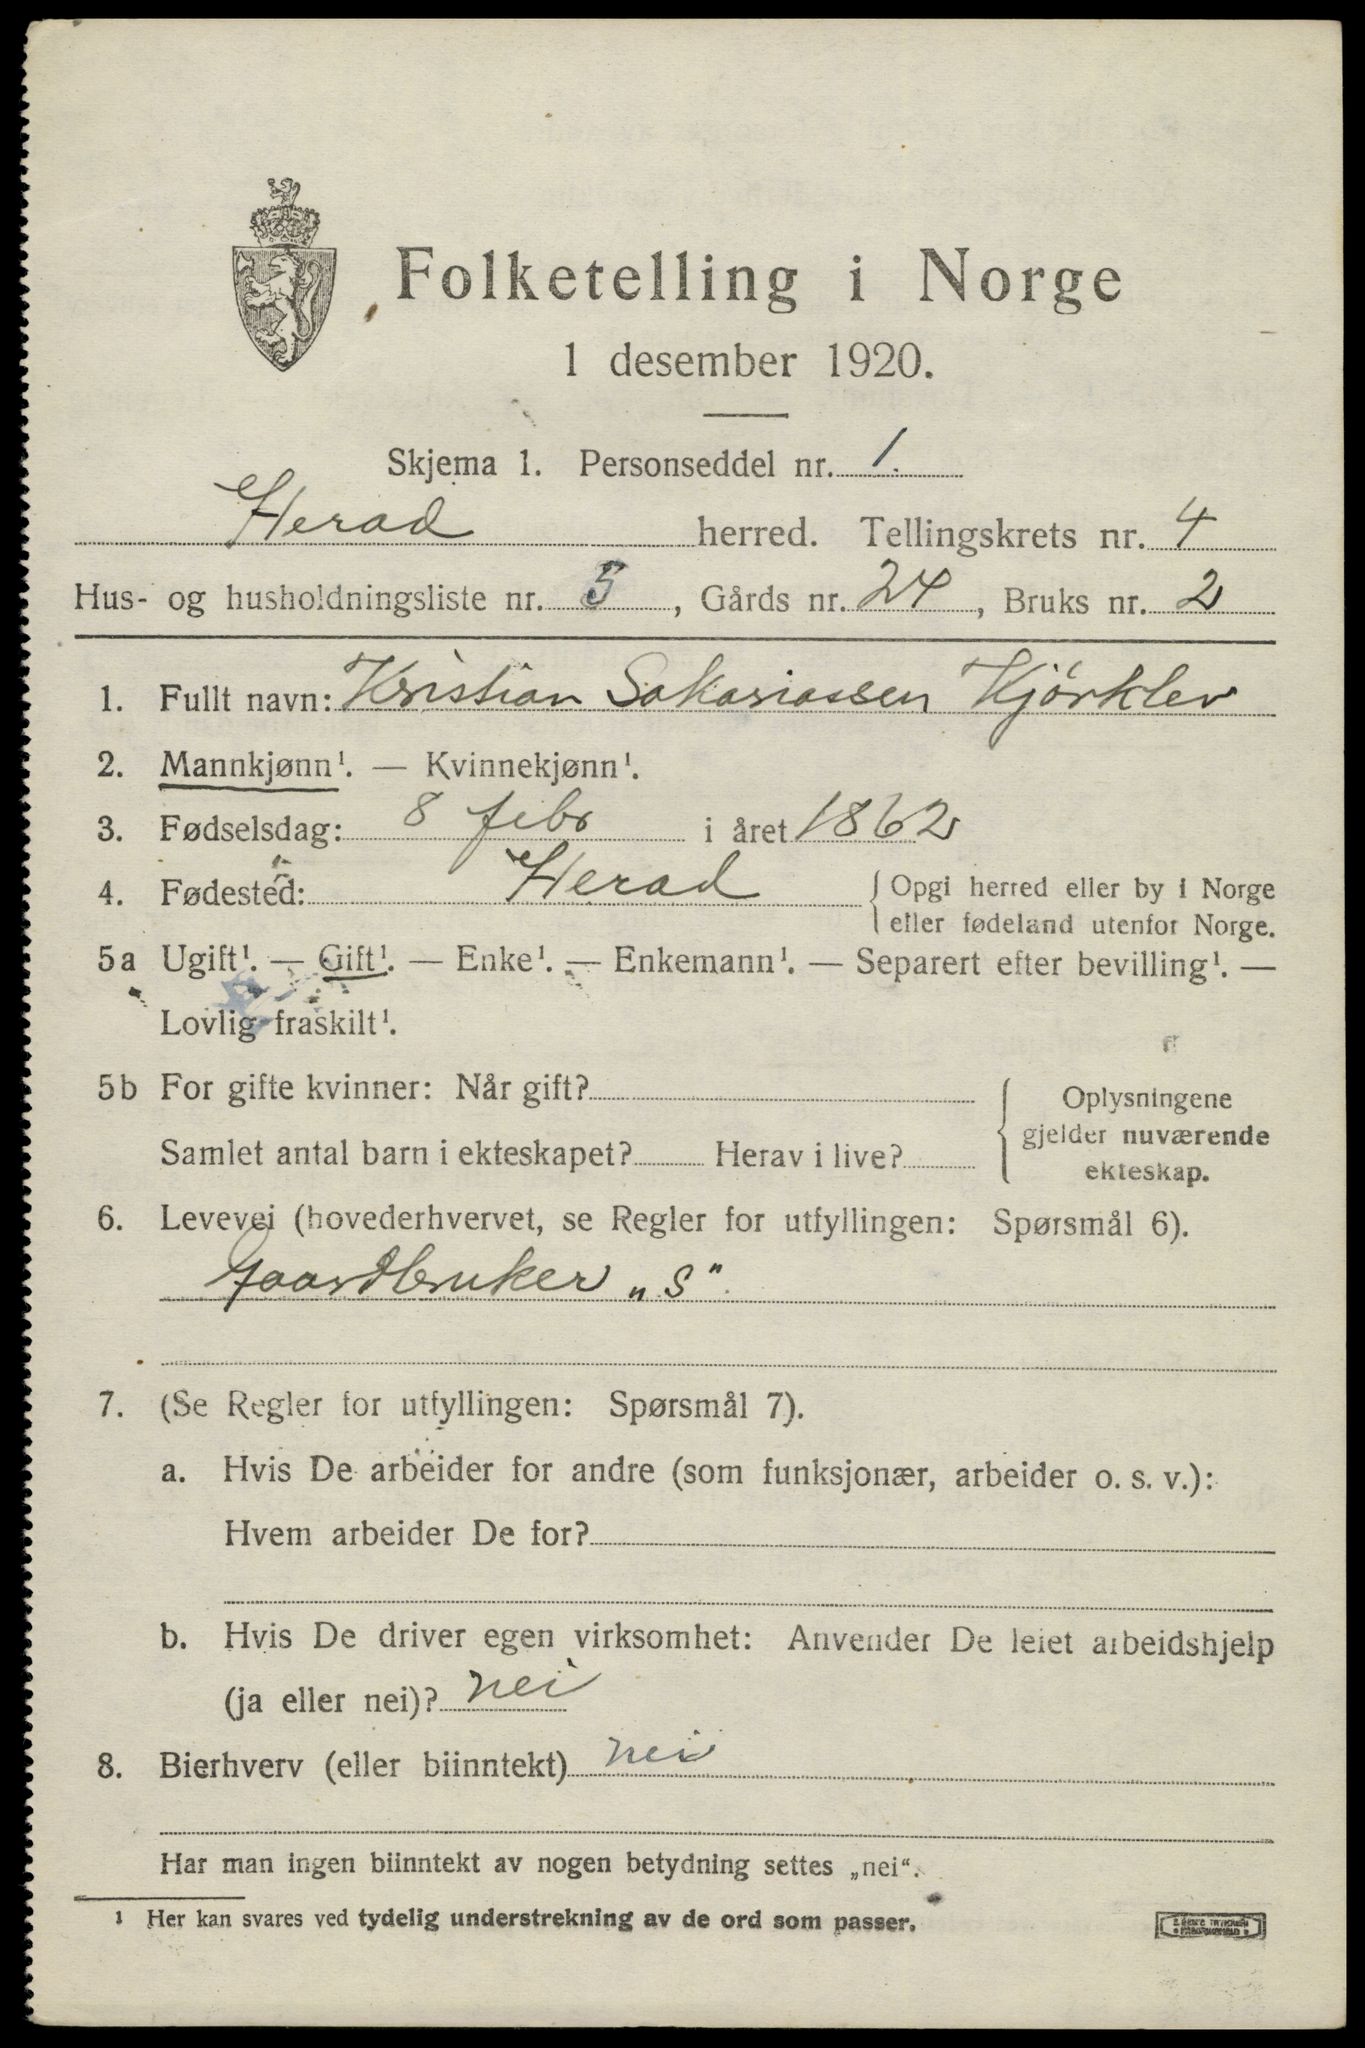 Folketelling i Norge
1 desember 1920.
Skjema 1. Personseddel nr. 1.
Herad herred. Tellingskrets nr. 4
Hus- og husholdningsliste nr. 5, Gårds nr. 24, Bruks nr. 2
1. Fullt navn: Kristian Sakariassen Kjörklev
2. Mannkjønn¹. — Kvinnekjønn¹.
3. Fødselsdag: 8 febr i året 1862
4. Fødested: Herad { Opgi herred eller by i Norge
eller fødeland utenfor Norge.
5a Ugift¹. — Gift¹. — Enke¹. — Enkemann¹. — Separert efter bevilling¹. —
Lovlig fraskilt¹.
5b For gifte kvinner: Når gift?
Samlet antal barn i ekteskapet? Herav i live?
{ Oplysningene
gjelder nuværende
ekteskap.
6. Levevei (hovederhvervet, se Regler for utfyllingen: Spørsmål 6).
Gaardbruker „S".
7. (Se Regler for utfyllingen: Spørsmål 7).
a. Hvis De arbeider for andre (som funksjonær, arbeider o. s. v.):
Hvem arbeider De for?
b. Hvis De driver egen virksomhet: Anvender De leiet arbeidshjelp
(ja eller nei)? nei
8. Bierhverv (eller biinntekt) nei
Har man ingen biinntekt av nogen betydning settes „nei“.
¹ Her kan svares ved tydelig understrekning av de ord som passer.